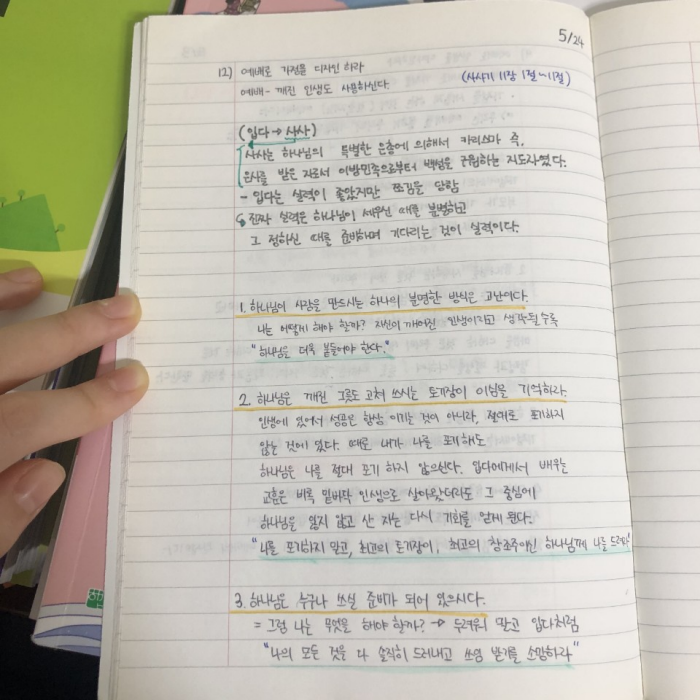 5/24
12) 예배로 가정을 디자인 하라
예배 - 깨진 인생도 사용하신다. (사사기 11장 1절~11절)
(입다 → 사사)
사사는 하나님의 특별한 은총에 의해서 카리스마 즉,
은사를 받은 자로서 이방민족으로부터 백성을 구원하는 지도자였다.
- 입다는 실력이 좋았지만 쫓김을 당함
↳ 진짜 실력은 하나님이 세우신 때를 분별하고
그 정하신 때를 준비하며 기다리는 것이 실력이다.
1. 하나님이 사람을 만드시는 하나의 분명한 방식은 고난이다.
나는 어떻게 해야 할까? 자신이 깨어진 인생이라고 생각될수록
"하나님을 더욱 붙들어야 한다."
2. 하나님은 깨진 그릇도 고쳐 쓰시는 토기장이 이심을 기억하라.
인생에 있어서 성공은 항상 이기는 것이 아니라, 절대로 포기하지
않는 것에 있다. 때로 내가 나를 포기해도
하나님은 나를 절대 포기 하지 않으신다. 입다에게서 배우는
교훈은 비록 밑바닥 인생으로 살아왔더라도 그 중심에
하나님을 잃지 않고 산 자는 다시 기회를 얻게 된다.
"나를 포기하지 말고, 최고의 토기장이, 최고의 창조주이신 하나님께 나를 드려라"
3. 하나님은 누구나 쓰실 준비가 되어 있으시다.
= 그럼 나는 무엇을 해야 할까? → 두려워 말고 입다처럼
"나의 모든 것을 다 솔직히 드러내고 쓰임 받기를 소망하라"